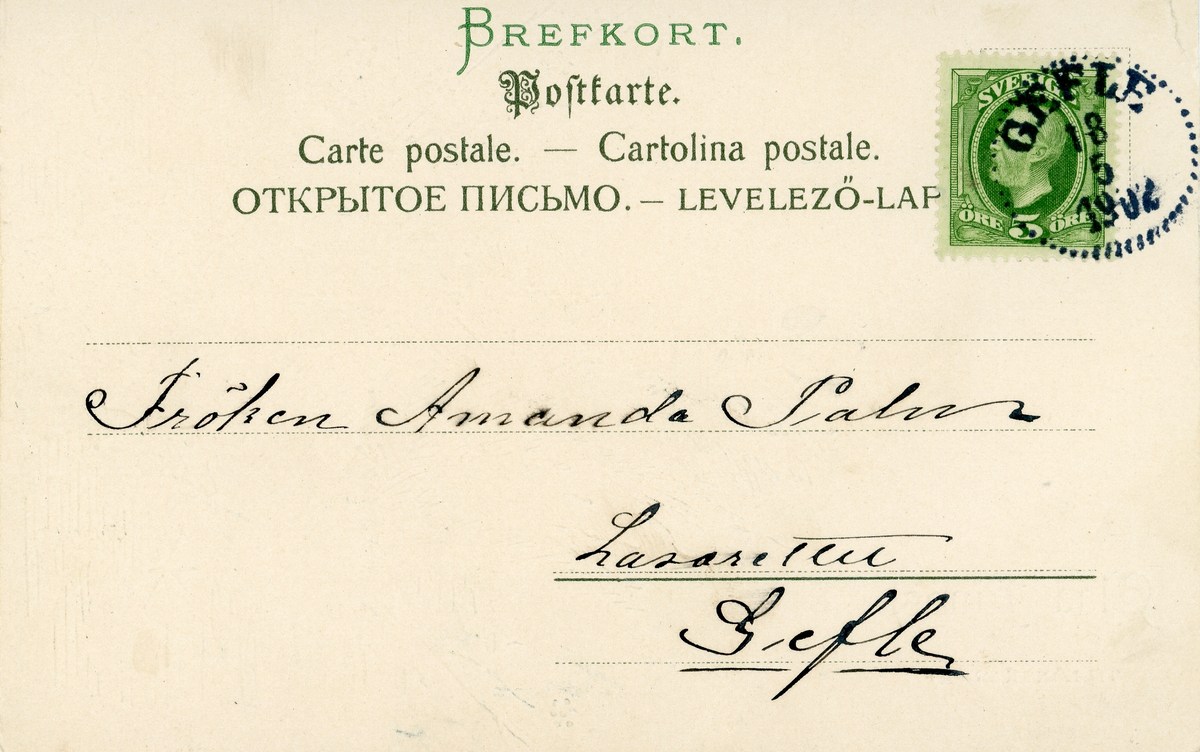 BREFKORT.
Postkarte.
Carte postale. — Cartolina postale.
ОТКРЫТОЕ ПИСЬМО. — LEVELEZŐ-LAP
SVERIGE
ÖRE 5 ÖRE
GEFLE
18
5
1902
Fröken Amanda Palm
Lasarettet
Gefle